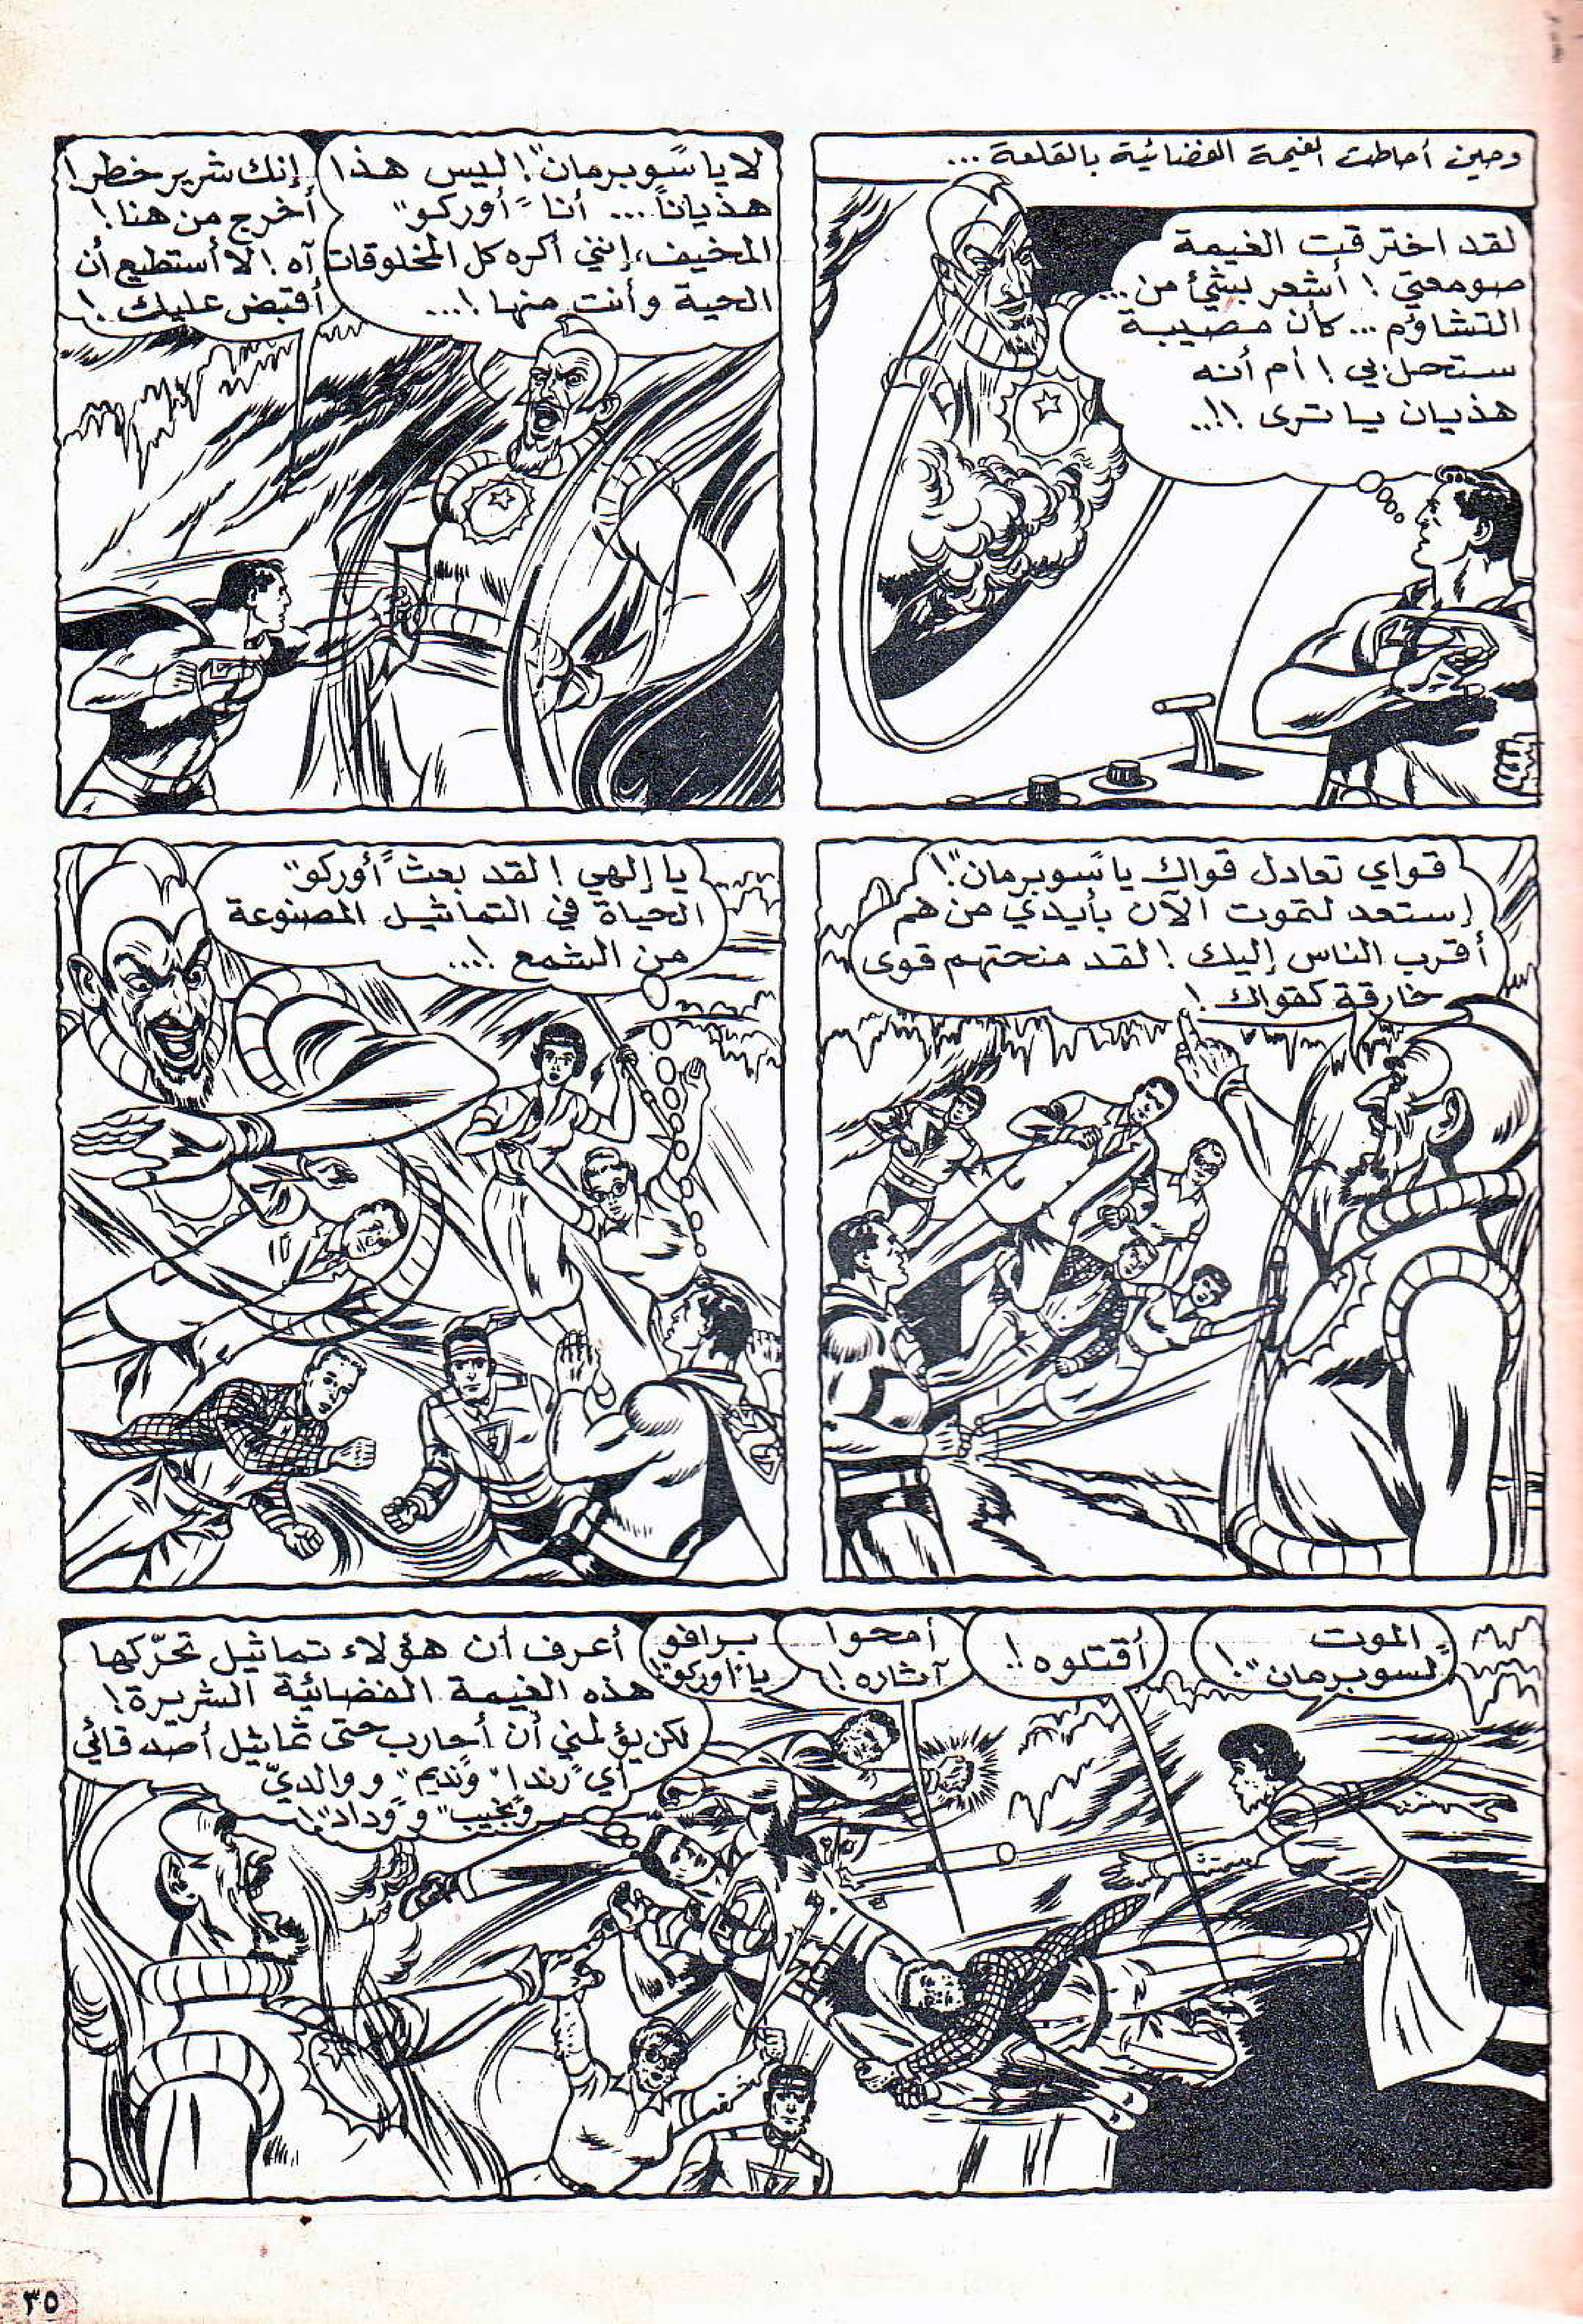 وحين أحاطت الغيمة الفضائية بالقلعة ...
لقد اخترقت الغيمة
صومعتي ! أشعر بشيء من ...
التشاؤم ... كأن مصيبة
ستحل بي ! أم أنه
هذيان يا ترى !!..
لا يا "سوبرمان" ! ليس هذا
هذياناً ... أنا "أوركو"
المخيف، إنني أكره كل المخلوقات
الحية وأنت منها !...
إنك شرير خطر !
أخرج من هنا !
آه ! لا أستطيع أن
أقبض عليك !
قواي تعادل قواك يا "سوبرمان" !
إستعد لتموت الآن بأيدي من هم
أقرب الناس إليك ! لقد منحتهم قوى
خارقة كقواك !
يا إلهي ! لقد بعث "أوركو"
الحياة في التماثيل المصنوعة
من الشمع !...
الموت
"لسوبرمان" !
أقتلوه !!
أمحوا
آثاره !
برافو
يا "أوركو" !
أعرف أن هؤلاء تماثيل تحرّكها
هذه الغيمة الفضائية الشريرة !
لكن يؤلمني أن أحارب حتى تماثيل أصدقائي
أي "رندا" و"نديم" و والديّ
و"نجيب" و"وداد" !
٣٥